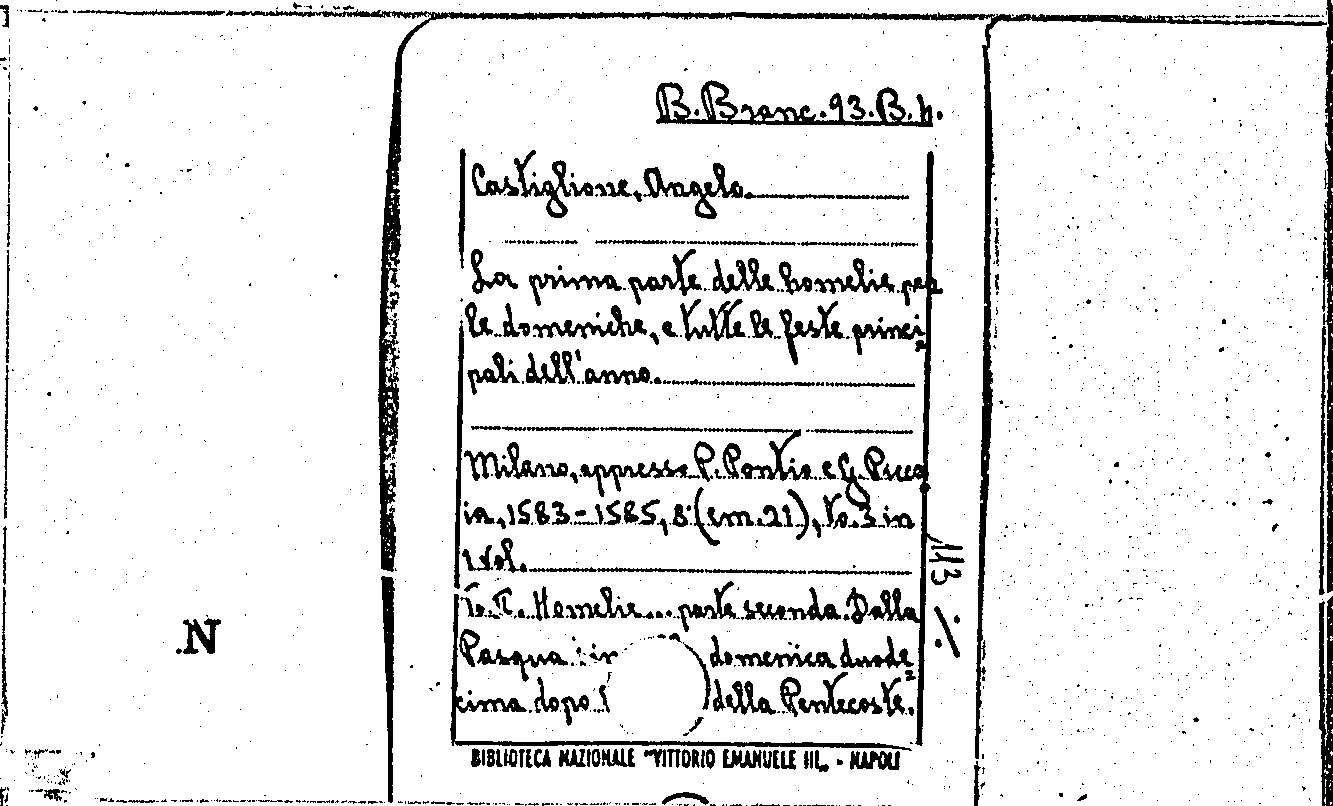 B. Branc. 93. B. h.
Castiglione, Angelo.
La prima parte delle homelie per
le domeniche, e tutte le feste princi=
pali dell'anno.
Milano, appresso P. Pontio e G. Picca
ia, 1583-1585, 8° (cm. 21), to. 3 in
1 vol.
To. II. Homelie... parte seconda. Dalla
Pasqua in domenica duode=
cima dopo della Pentecoste.
113
./.
N.
BIBLIOTECA NAZIONALE "VITTORIO EMANUELE III„ - NAPOLI